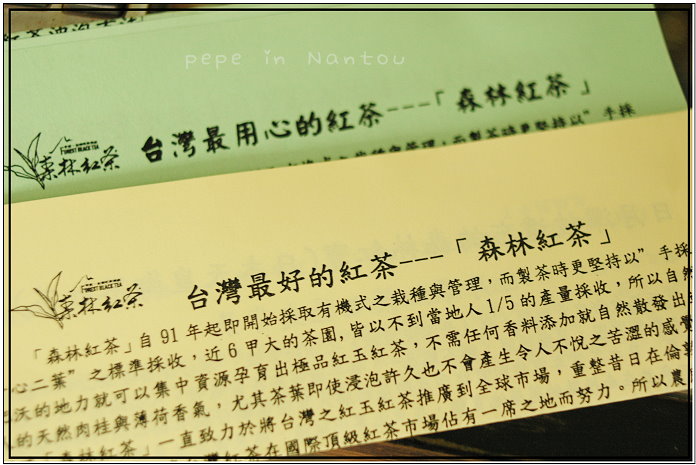 pepe in Nantou
台灣最用心的紅茶---「森林紅茶」
森林紅茶
FOREST BLACK TEA
而製茶時更堅持以”手採
台灣最好的紅茶---「森林紅茶」
森林紅茶
FOREST BLACK TEA
「森林紅茶」自91年起即開始採取有機式之栽種與管理,而製茶時更堅持以”手採
心二葉”之標準採收,近6甲大的茶園,皆以不到當地人1/5的產量採收,所以自然
沃的地力就可以集中資源孕育出極品紅玉紅茶,不需任何香料添加就自然散發出
的天然肉桂與薄荷香氣,尤其茶葉即使浸泡許久也不會產生令人不悅之苦澀的感覺
「森林紅茶」一直致力於將台灣之紅玉紅茶推廣到全球市場,重整昔日在倫敦
台灣紅茶在國際頂級紅茶市場佔有一席之地而努力。所以農